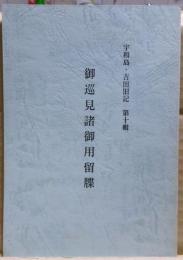 宇和島・吉田旧記 第十輯
御巡見諸御用留牒